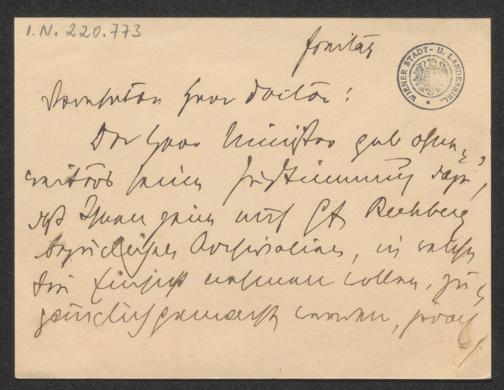 I.N. 220.773
WIENER STADT- U. LANDESBIBL.
Freitag
Verehrter Herr Doctor!
Der Herr Minister gab ohne
weiters seine Zustimmung dazu,
daß Ihnen jene auf Gf. Rechberg
bezüglichen Archivalien, in welche
Sie Einsicht nehmen wollen, zu-
gänglich gemacht werden,